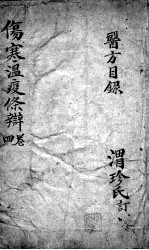 醫方目錄
渭珍氏訂
傷寒溫疫條辯 卷四